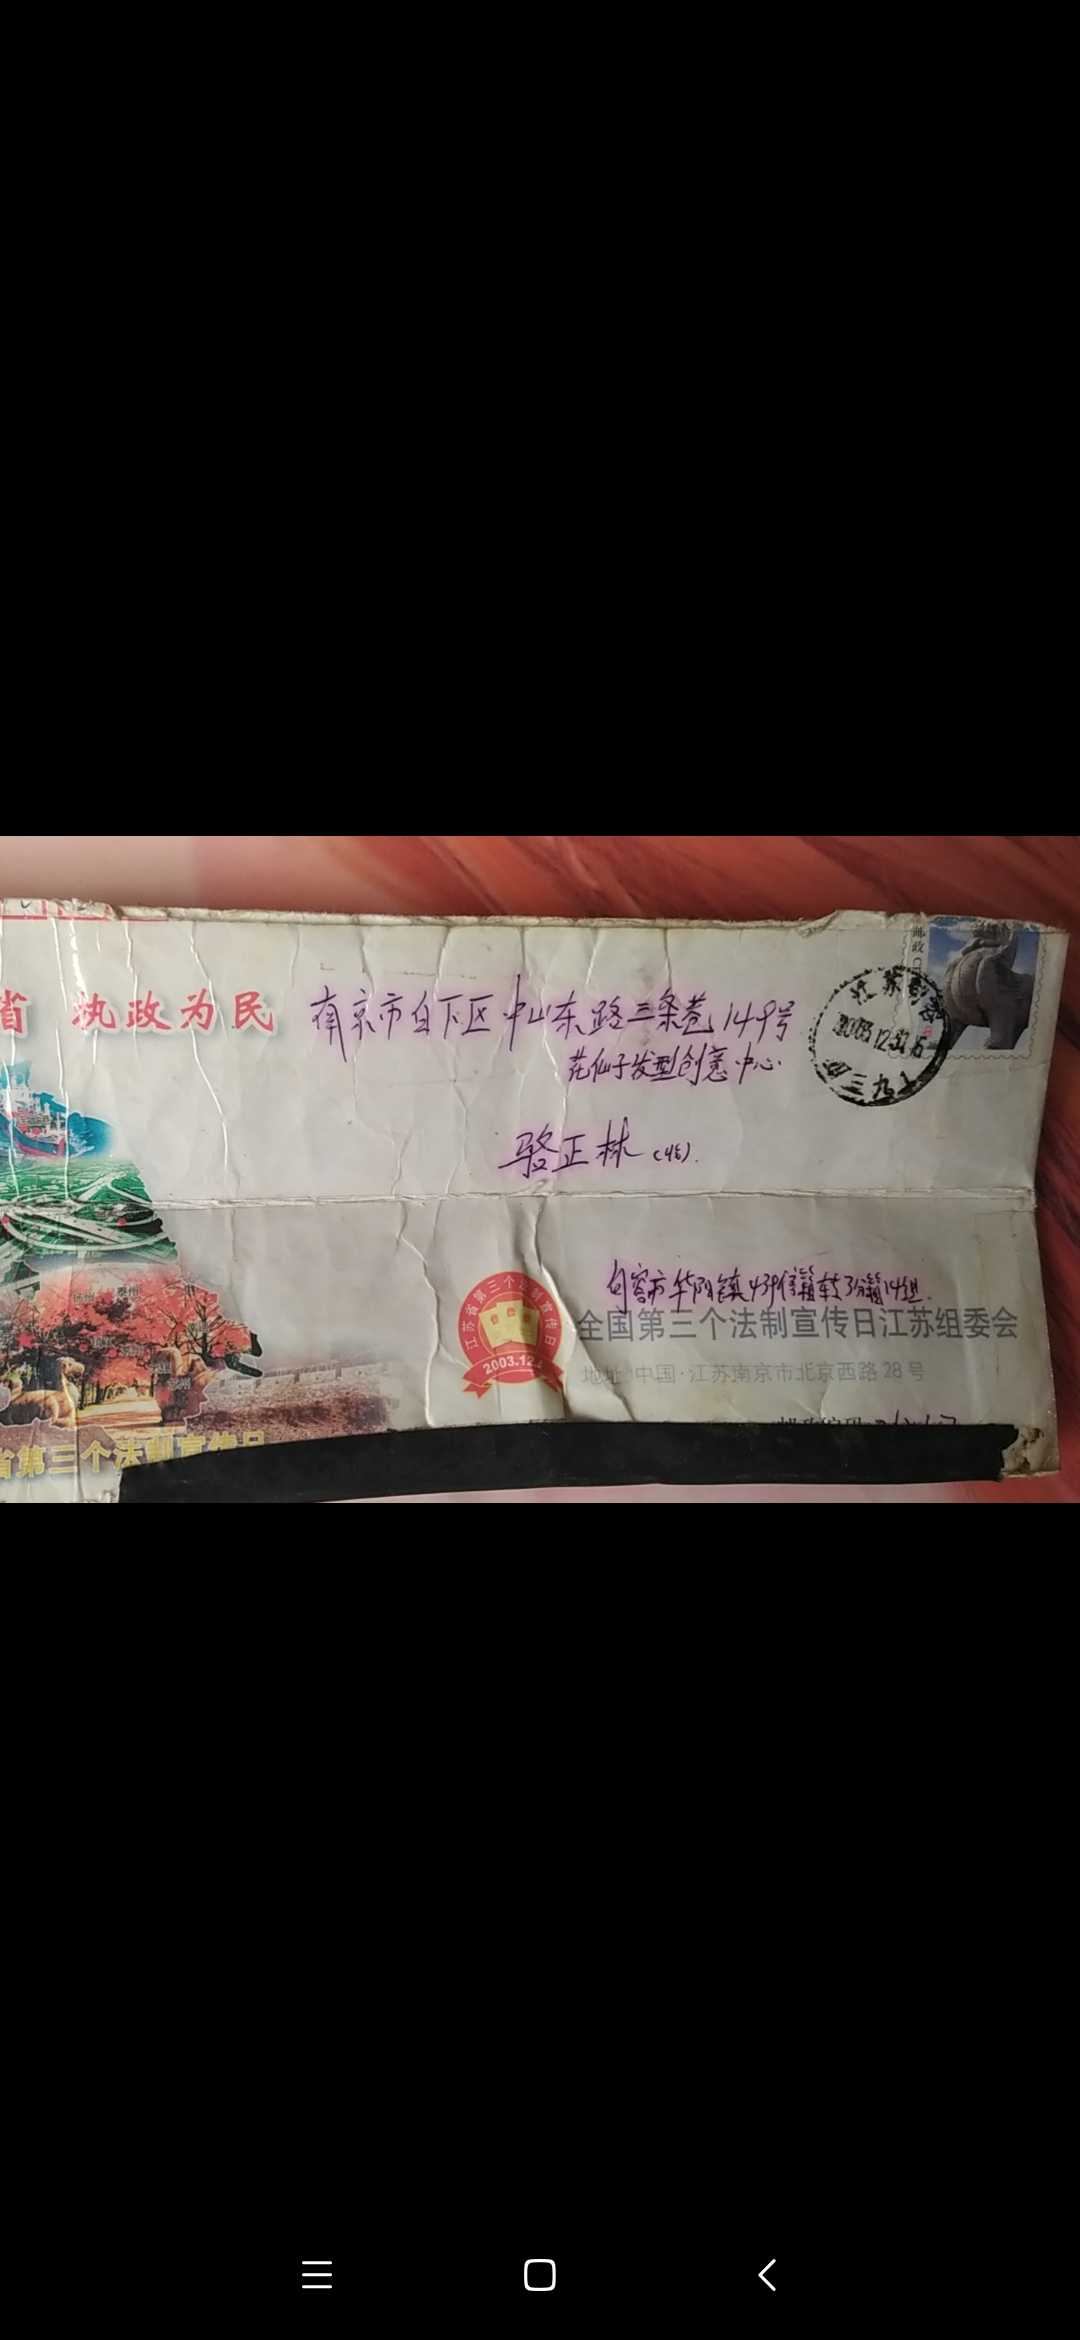 省 执政为民
南京市白下区中山东路三条巷149号
花仙子发型创意中心
骆正林(收).
句容市华阳镇439信箱转3分箱14组.
全国第三个法制宣传日江苏组委会
地址:中国·江苏南京市北京西路28号
江苏省第三个法制宣传日
2003.12.4
邮政
江苏句容
泰州
省第三个法制宣传日